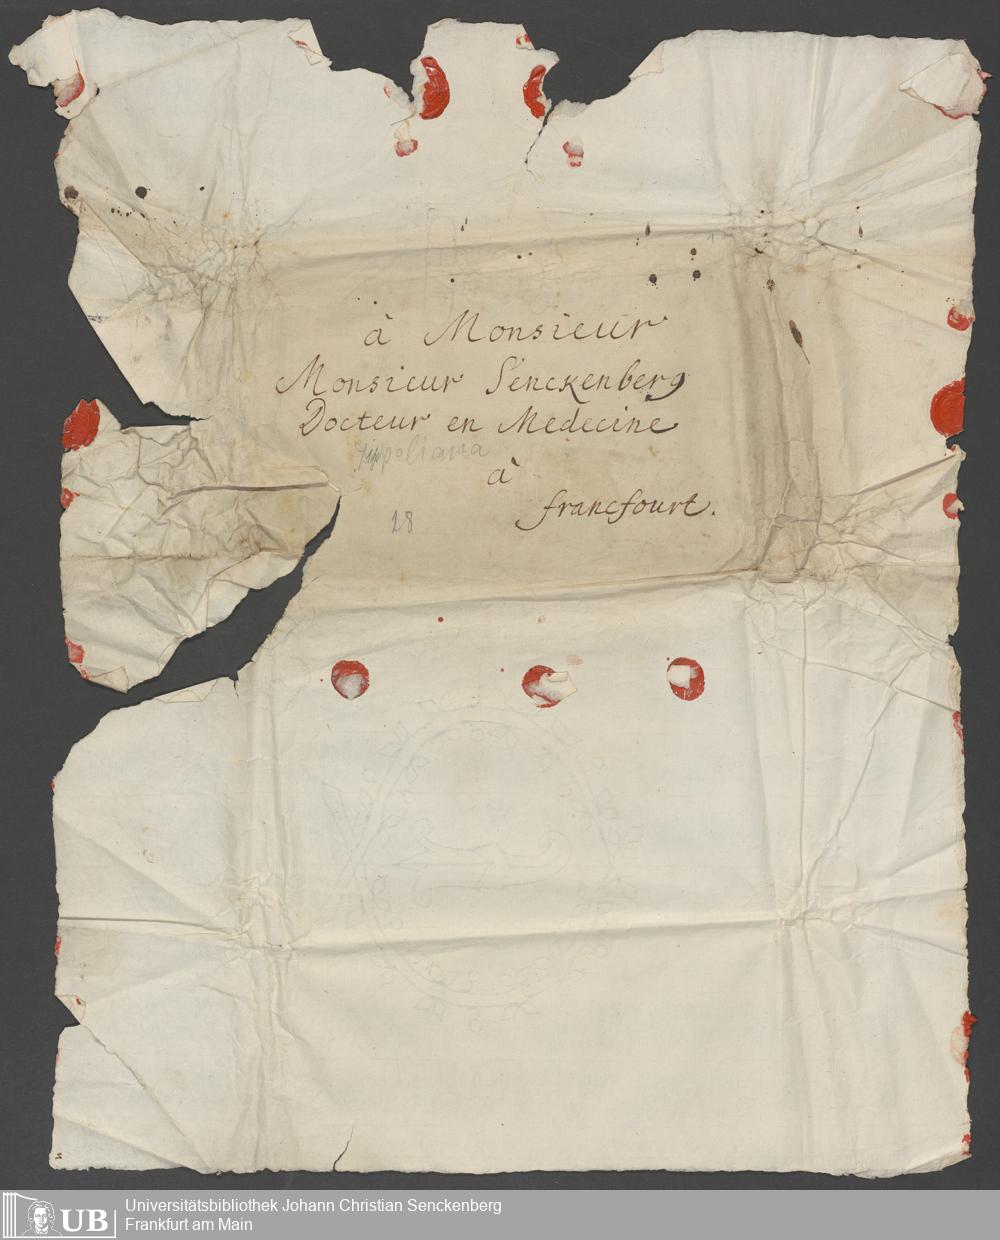 à Monsieur
Monsieur Senckenberg
Docteur en Medecine
à
francfourt.
28
Universitätsbibliothek Johann Christian Senckenberg
Frankfurt am Main
UB